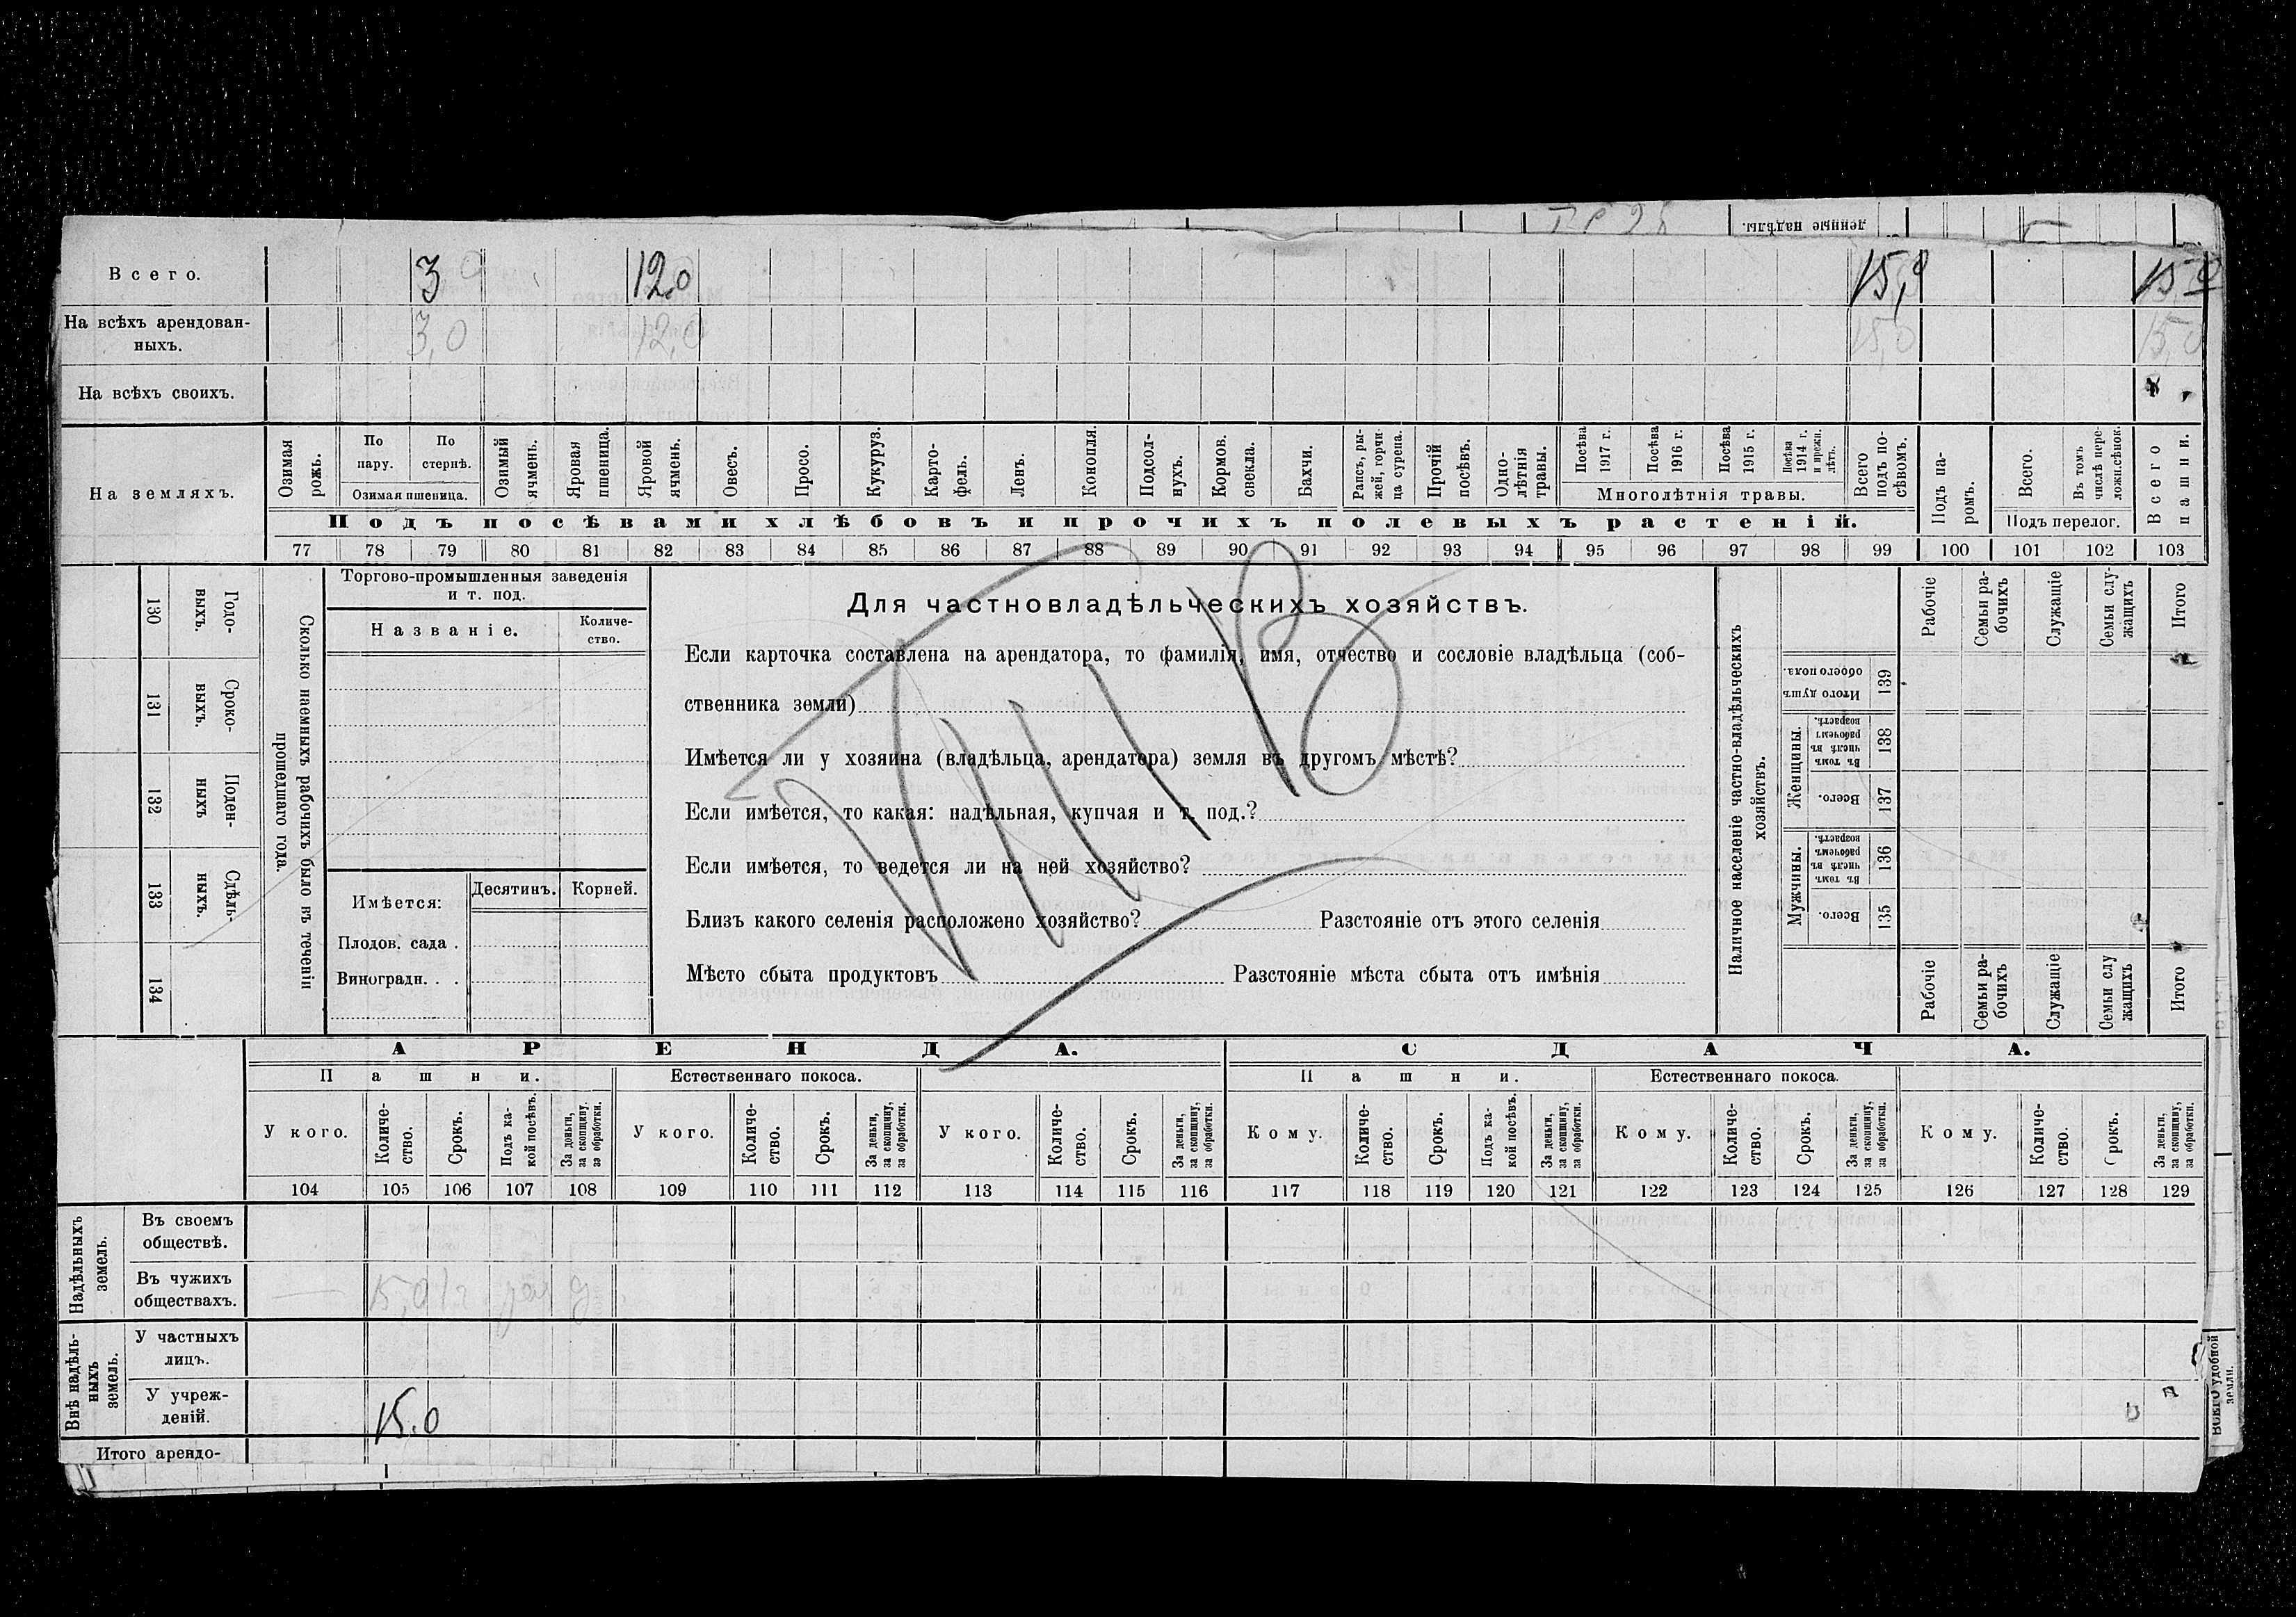 денные надѣлы.
Всего. 3 12.0 15,0 15,0
На всѣхъ арендован-
ныхъ. 3,0 12,0 15,0 15,0
На всѣхъ своихъ.
На земляхъ.
Озимая рожь.
По пару.
По стернѣ.
Озимая пшеница.
Озимый ячмень.
Яровая пшеница.
Яровой ячмень.
Овесъ.
Просо.
Кукуруз.
Карто-
фель.
Ленъ.
Конопля.
Подсол-
нухъ.
Кормов.
свекла.
Бахчи.
Рапсъ, ры-
жей, горчи-
ца сурепа.
Прочій
посѣвъ.
Одно-
лѣтнія
травы.
Посѣва
1917 г.
Посѣва
1916 г.
Посѣва
1915 г.
Посѣва
1914 г.
и прежн.
лѣтъ.
Многолѣтнія травы.
Всего
подъ по-
сѣвомъ.
Подъ па-
ромъ.
Всего.
Въ томъ
числѣ пере-
ложн.сѣнок.
Подъ перелог.
Всего
пашни.
Подъ посѣвами хлѣбовъ и прочихъ полевыхъ растеній.
77 78 79 80 81 82 83 84 85 86 87 88 89 90 91 92 93 94 95 96 97 98 99 100 101 102 103
130 Годо-
выхъ.
131 Сроко-
выхъ.
132 Поден-
ныхъ
133 Сдѣль-
ныхъ.
134
Сколько наемныхъ рабочихъ было въ теченіи
прошедшаго года.
Торгово-промышленныя заведенія
и т. под.
Названіе.
Количе-
ство.
Имѣется:
Десятинъ.
Корней.
Плодов. сада .
Виноградн. . .
Для частновладѣльческихъ хозяйствъ.
Если карточка составлена на арендатора, то фамилія, имя, отчество и сословіе владѣльца (соб-
ственника земли)
Имѣется ли у хозяина (владѣльца, арендатора) земля въ другомъ мѣстѣ?
Если имѣется, то какая: надѣльная, купчая и т. под.?
Если имѣется, то ведется ли на ней хозяйство?
Близъ какого селенія расположено хозяйство? Разстояніе отъ этого селенія
Мѣсто сбыта продуктовъ Разстояніе мѣста сбыта отъ имѣнія
Наличное населеніе частно-владѣльческихъ
хозяйствъ.
Рабочіе
Семьи ра-
бочихъ
Служащіе
Семьи слу-
жащихъ
Итого
Итого душъ
обоего пола.
139
Женщины.
Въ томъ
числѣ въ
рабочемъ
возрастѣ.
138
Всего.
137
Мужчины.
Въ томъ
числѣ въ
рабочемъ
возрастѣ.
136
Всего.
135
Рабочіе
Семьи ра-
бочихъ
Служащіе
Семьи слу
жащихъ
Итого
АРЕНДА.
СДАЧА.
Пашни.
Естественнаго покоса.
Пашни.
Естественнаго покоса.
У кого.
Количе-
ство.
Срокъ.
Подъ ка-
кой посѣвъ.
За деньги,
за скопщину,
за обработки.
У кого.
Количе-
ство.
Срокъ.
За деньги,
за скопщину,
за обработки.
У кого.
Количе-
ство.
Срокъ.
За деньги,
за скопщину,
за обработки.
Кому.
Количе-
ство.
Срокъ.
Подъ ка-
кой посѣвъ.
За деньги,
за скопщину,
за обработки.
Кому.
Количе-
ство.
Срокъ.
За деньги,
за скопщину,
за обработки.
Кому.
Количе-
ство.
Срокъ.
За деньги,
за скопщину,
за обработки.
104 105 106 107 108 109 110 111 112 113 114 115 116 117 118 119 120 121 122 123 124 125 126 127 128 129
Надѣльныхъ
земель.
Въ своемъ
обществѣ.
Въ чужихъ
обществахъ. 15,0
Внѣ надѣль-
ныхъ
земель.
У частныхъ
лицъ.
У учреж-
деній.
15.0
Итого арендо-
Всего удобной
земли.